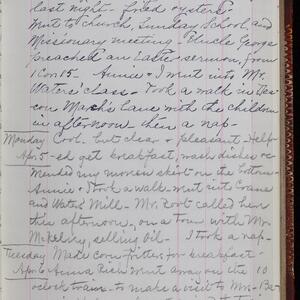 last night - fried oysters.
Went to church, Sunday School, and
Missionary meeting - Uncle George
preached an Easter sermon, from
1 Cor. 15 - Annie & I went into Mr.
Waters' class - Took a walk in
con Marsh's Lane with the children
in afternoon then a nap -
Monday Cool. but clear & pleasant. Help-
Apr. 5 - ed get breakfast, wash dishes &
mended my woolen skirt on the bottom -
Annie & I took a walk - went into
and Water Mill - Mr. Root called here
this afternoon, on a tour with Mr.
McKelvy, selling oil - I took a nap -
Tuesday Made corn fritters for breakfast -
Apr 6 Anna Rich went away on the 10
o'clock train - to make a visit to Mrs.